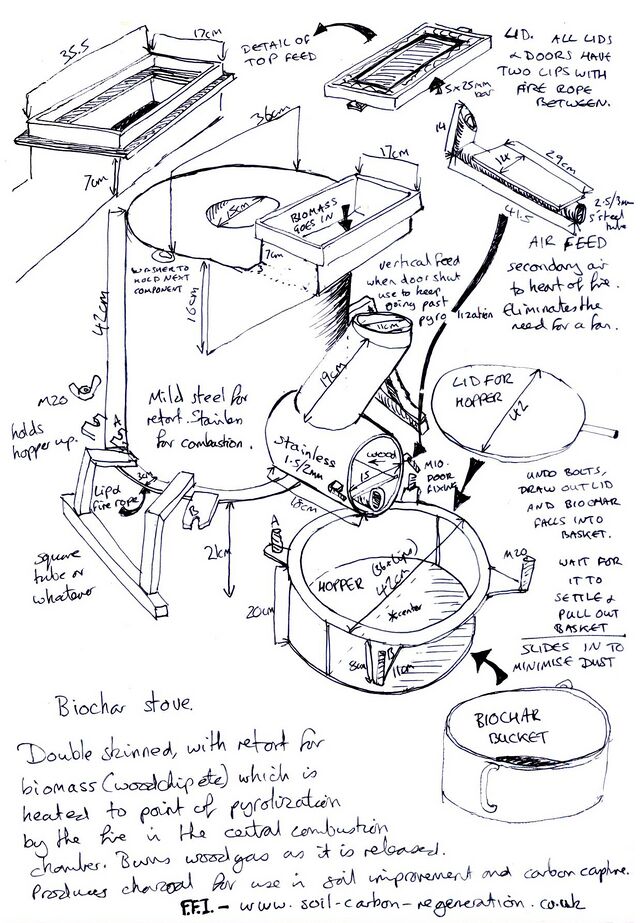 35.5
17cm
DETAIL OF
TOP FEED
LID. ALL LIDS
& DOORS HAVE
TWO LIPS WITH
FIRE ROPE
BETWEEN.
5x25mm
bar
7cm
36cm
17cm
15cm
BIOMASS
GOES IN
7cm
WASHER TO
HOLD NEXT
COMPONENT
16cm
42cm
14
14
29cm
41.5
2.5/3mm
s'steel
tube
AIR FEED
secondary air
to heart of fire.
Eliminates the
need for a fan.
vertical feed
when door shut
use to keep
going past
pyrolization
11cm
19cm
M20
holds
hopper up.
Mild steel for
retort. Stainless
for combustion.
Stainless
1.5/2mm
wood
15
48cm
M10.
DOOR
FIXING
LID FOR
HOPPER
42
UNDO BOLTS,
DRAW OUT LID
AND BIOCHAR
FALLS INTO
BASKET.
WAIT FOR
IT TO
SETTLE &
PULL OUT
BASKET
SLIDES IN TO
MINIMISE DUST
Lip &
fire rope
3cm
A
B
square
tube or
whatever
21cm
A
M20
HOPPER
42cm
20cm
8cm
B
11cm
BIOCHAR
BUCKET
Biochar stove.
Double skinned, with retort for
biomass (woodchip etc) which is
heated to point of pyrolization
by the fire in the central combustion
chamber. Burns woodgas as it is released.
Produces charcoal for use in soil improvement and carbon capture.
F.F.I. - www.soil-carbon-regeneration.co.uk